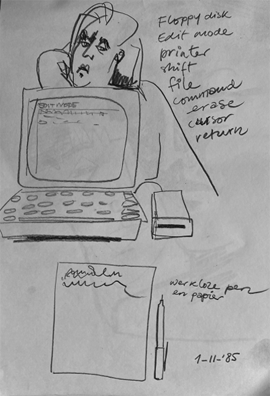 Floppy disk
Edit mode
printer
shift
file
command
erase
cursor
return
EDIT MODE
werkloze pen
en papier
1-11-'85